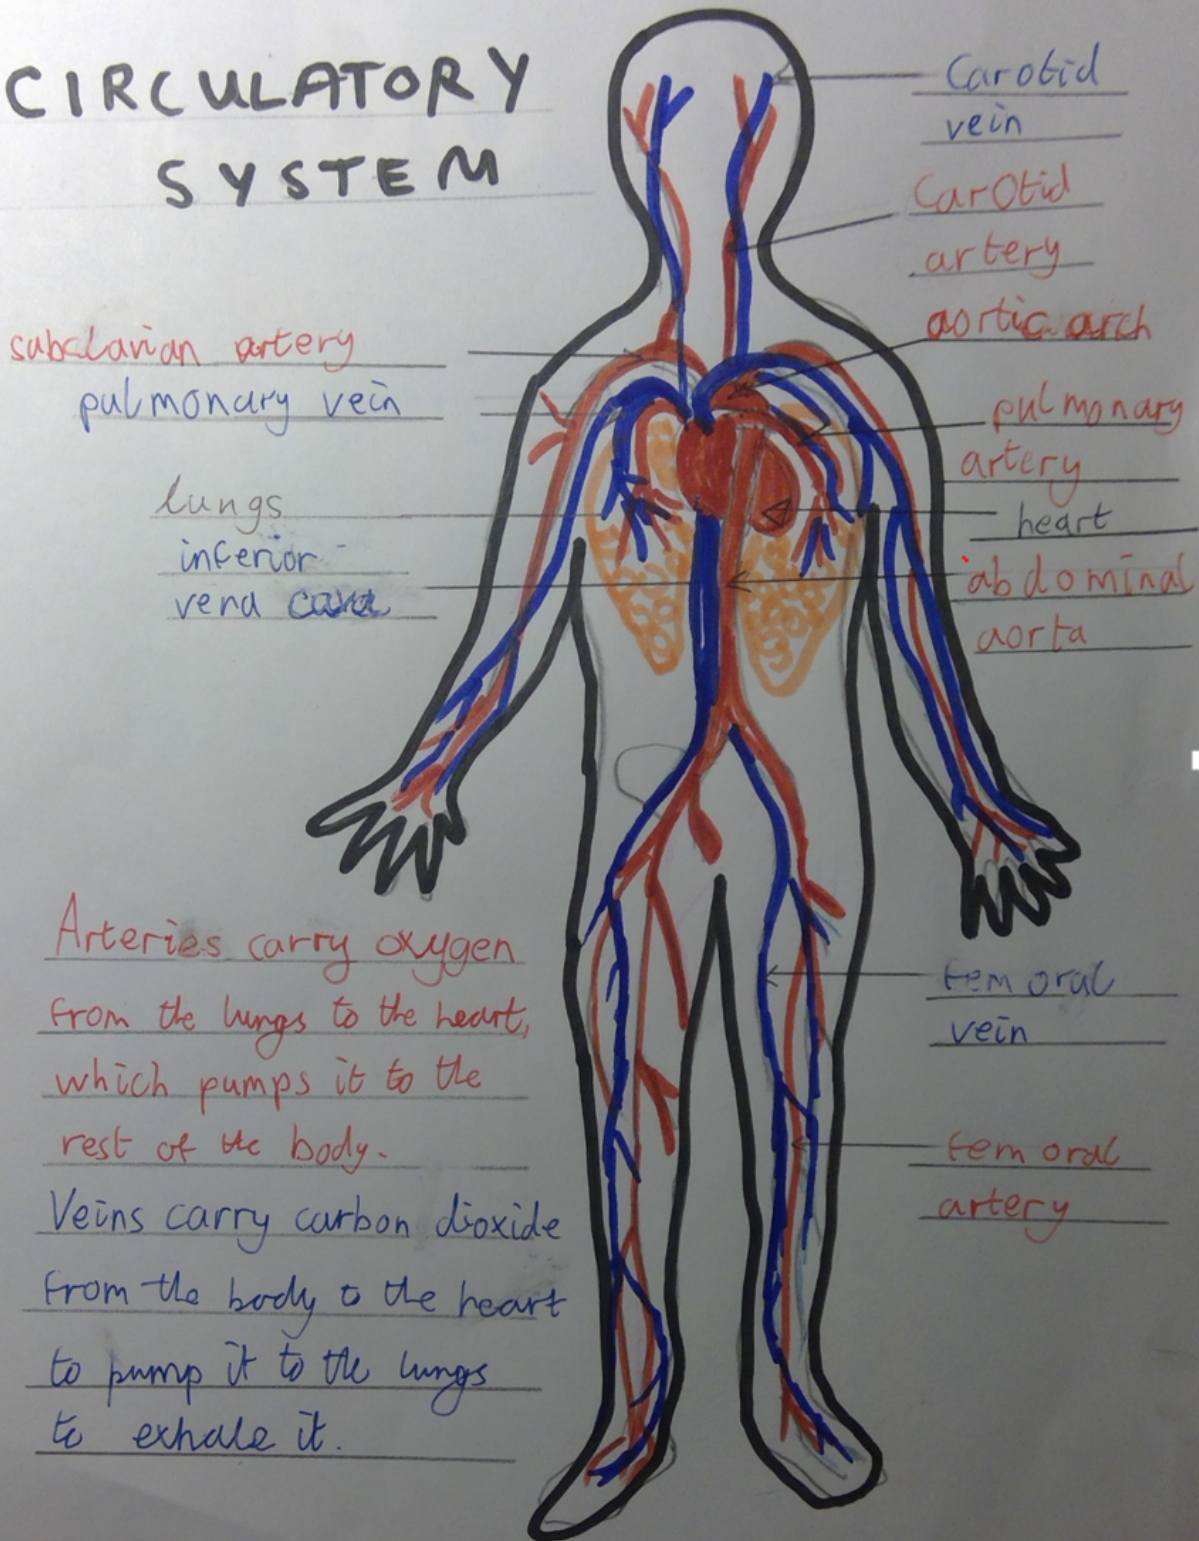 CIRCULATORY
SYSTEM
Carotid
vein
Carotid
artery
aortic arch
subclavian artery
pulmonary vein
pulmonary
artery
lungs
heart
inferior
vena cava
abdominal
aorta
Arteries carry oxygen
from the lungs to the heart,
which pumps it to the
rest of the body.
Veins carry carbon dioxide
from the body to the heart
to pump it to the lungs
to exhale it.
femoral
vein
femoral
artery